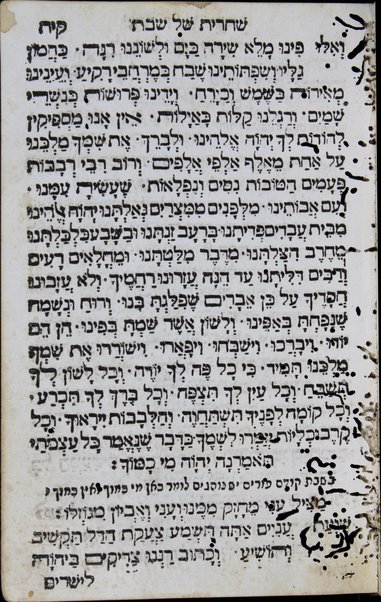 שחרית של שבת קיח
ואלו פינו מלא שירה כים ולשוננו רנה כהמון
גליו ושפתותינו שבח כמרחבי רקיע ועינינו
מאירות כשמש וכירח וידינו פרושות כנשרי
שמים ורגלנו קלות כאילות אין אנו מספיקין
להודות לך יהוה אלהינו ולברך את שמך מלכנו
על אחת מאלף אלפי אלפים ורוב רבי רבבות
פעמים הטובות נסים ונפלאות שעשית עמנו
ועם אבותינו מלפנים ממצרים גאלתנו יהוה אלהינו
מבית עבדים פדיתנו ברעב זנתנו ובשבע כלכלתנו
מחרב הצלתנו מדבר מלטתנו ומחלאים רעים
ורבים דליתנו עד הנה עזרונו רחמיך ולא עזבונו
חסדיך על כן אברים שפלגת בנו ורוח ונשמה
שנפחת באפינו ולשון אשר שמת בפינו הן הם
יודו ויברכו וישבחו ויפארו וישוררו את שמך
מלכנו תמיד כי כל פה לך יודה וכל לשון לך
תשבח וכל עין לך תצפה וכל ברך לך תכרע
וכל קומה לפניך תשתחוה והלבבות ייראוך וכל
קרב וכליות יזמרו לשמך כדבר שנאמר כל עצמתי
תאמרנה יהוה מי כמוך׃
מציל עני מחזק ממנו ועני ואביון מגוזלו׃
שועת
עניים אתה תשמע צעקת הדל תקשיב
ותושיע וכתוב רננו צדיקים ביהוה
לישרים